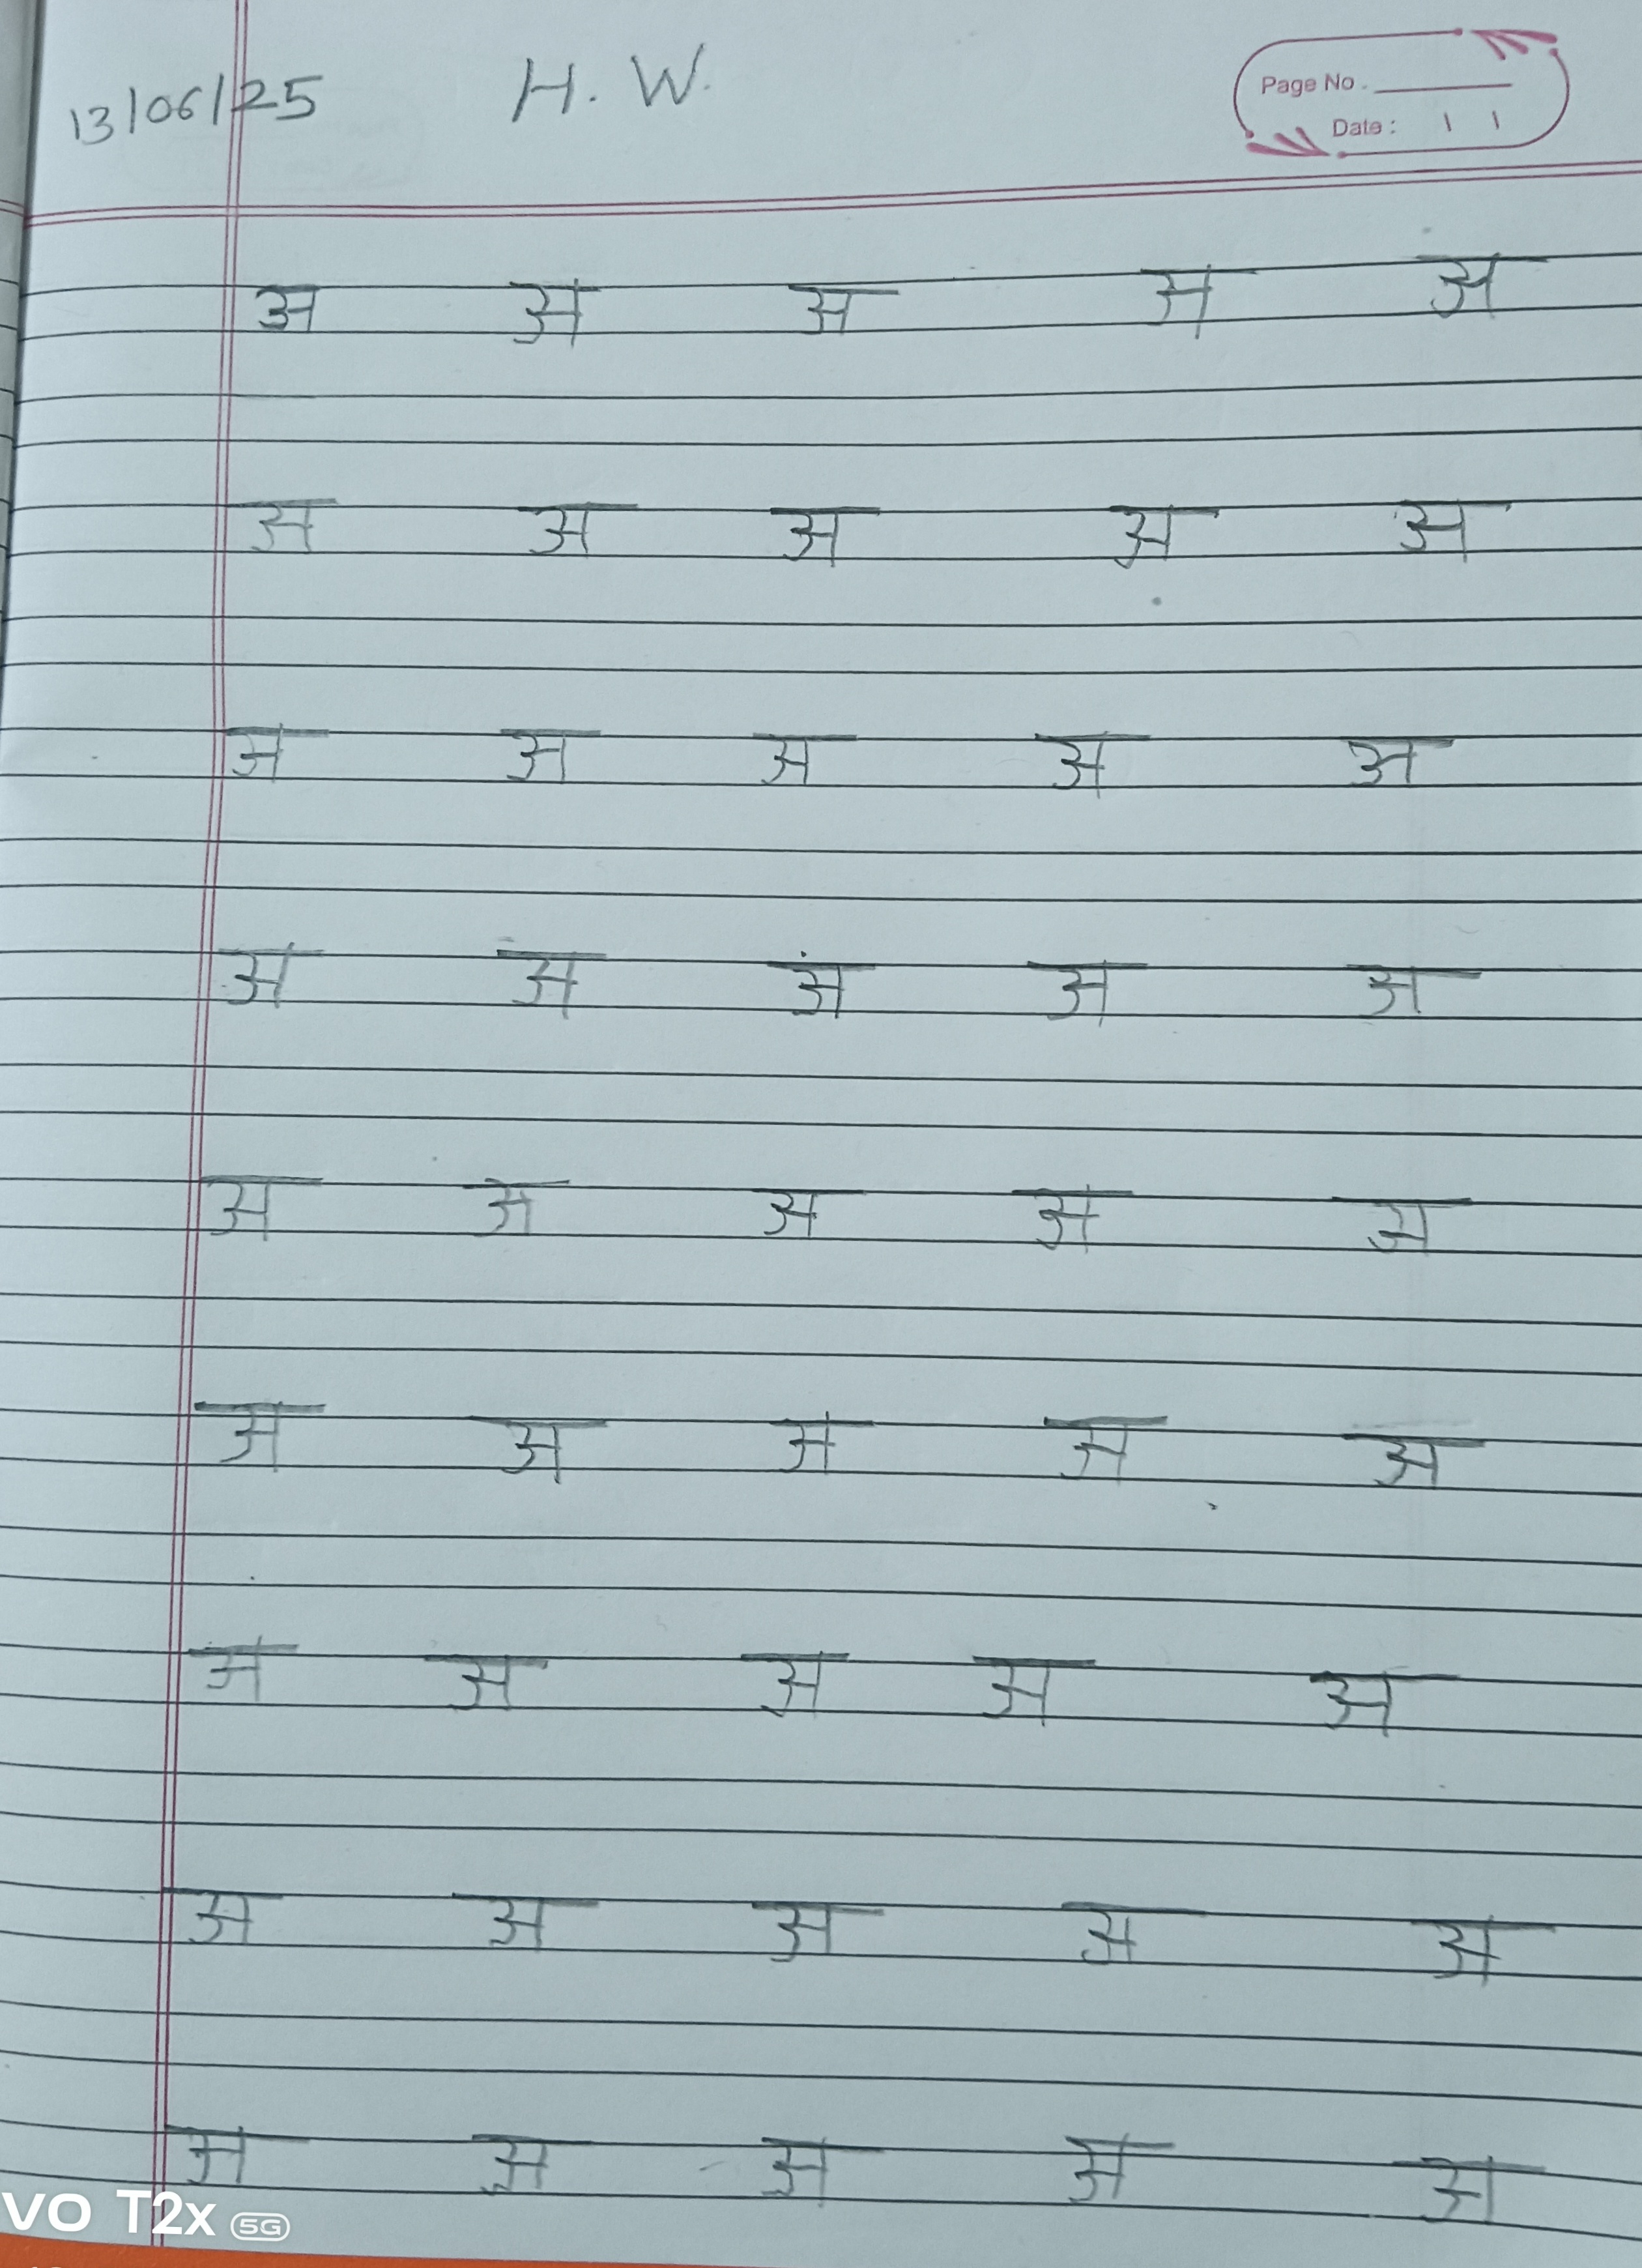 13/06/25 H.W. Page No.
Date :
अ अ अ अ अ
अ अ अ अ अ
अ अ अ अ अ
अ अ अ अ अ
अ अ अ अ अ
अ अ अ अ अ
अ अ अ अ अ
अ अ अ अ अ
अ अ अ अ अ
VO T2x 5G